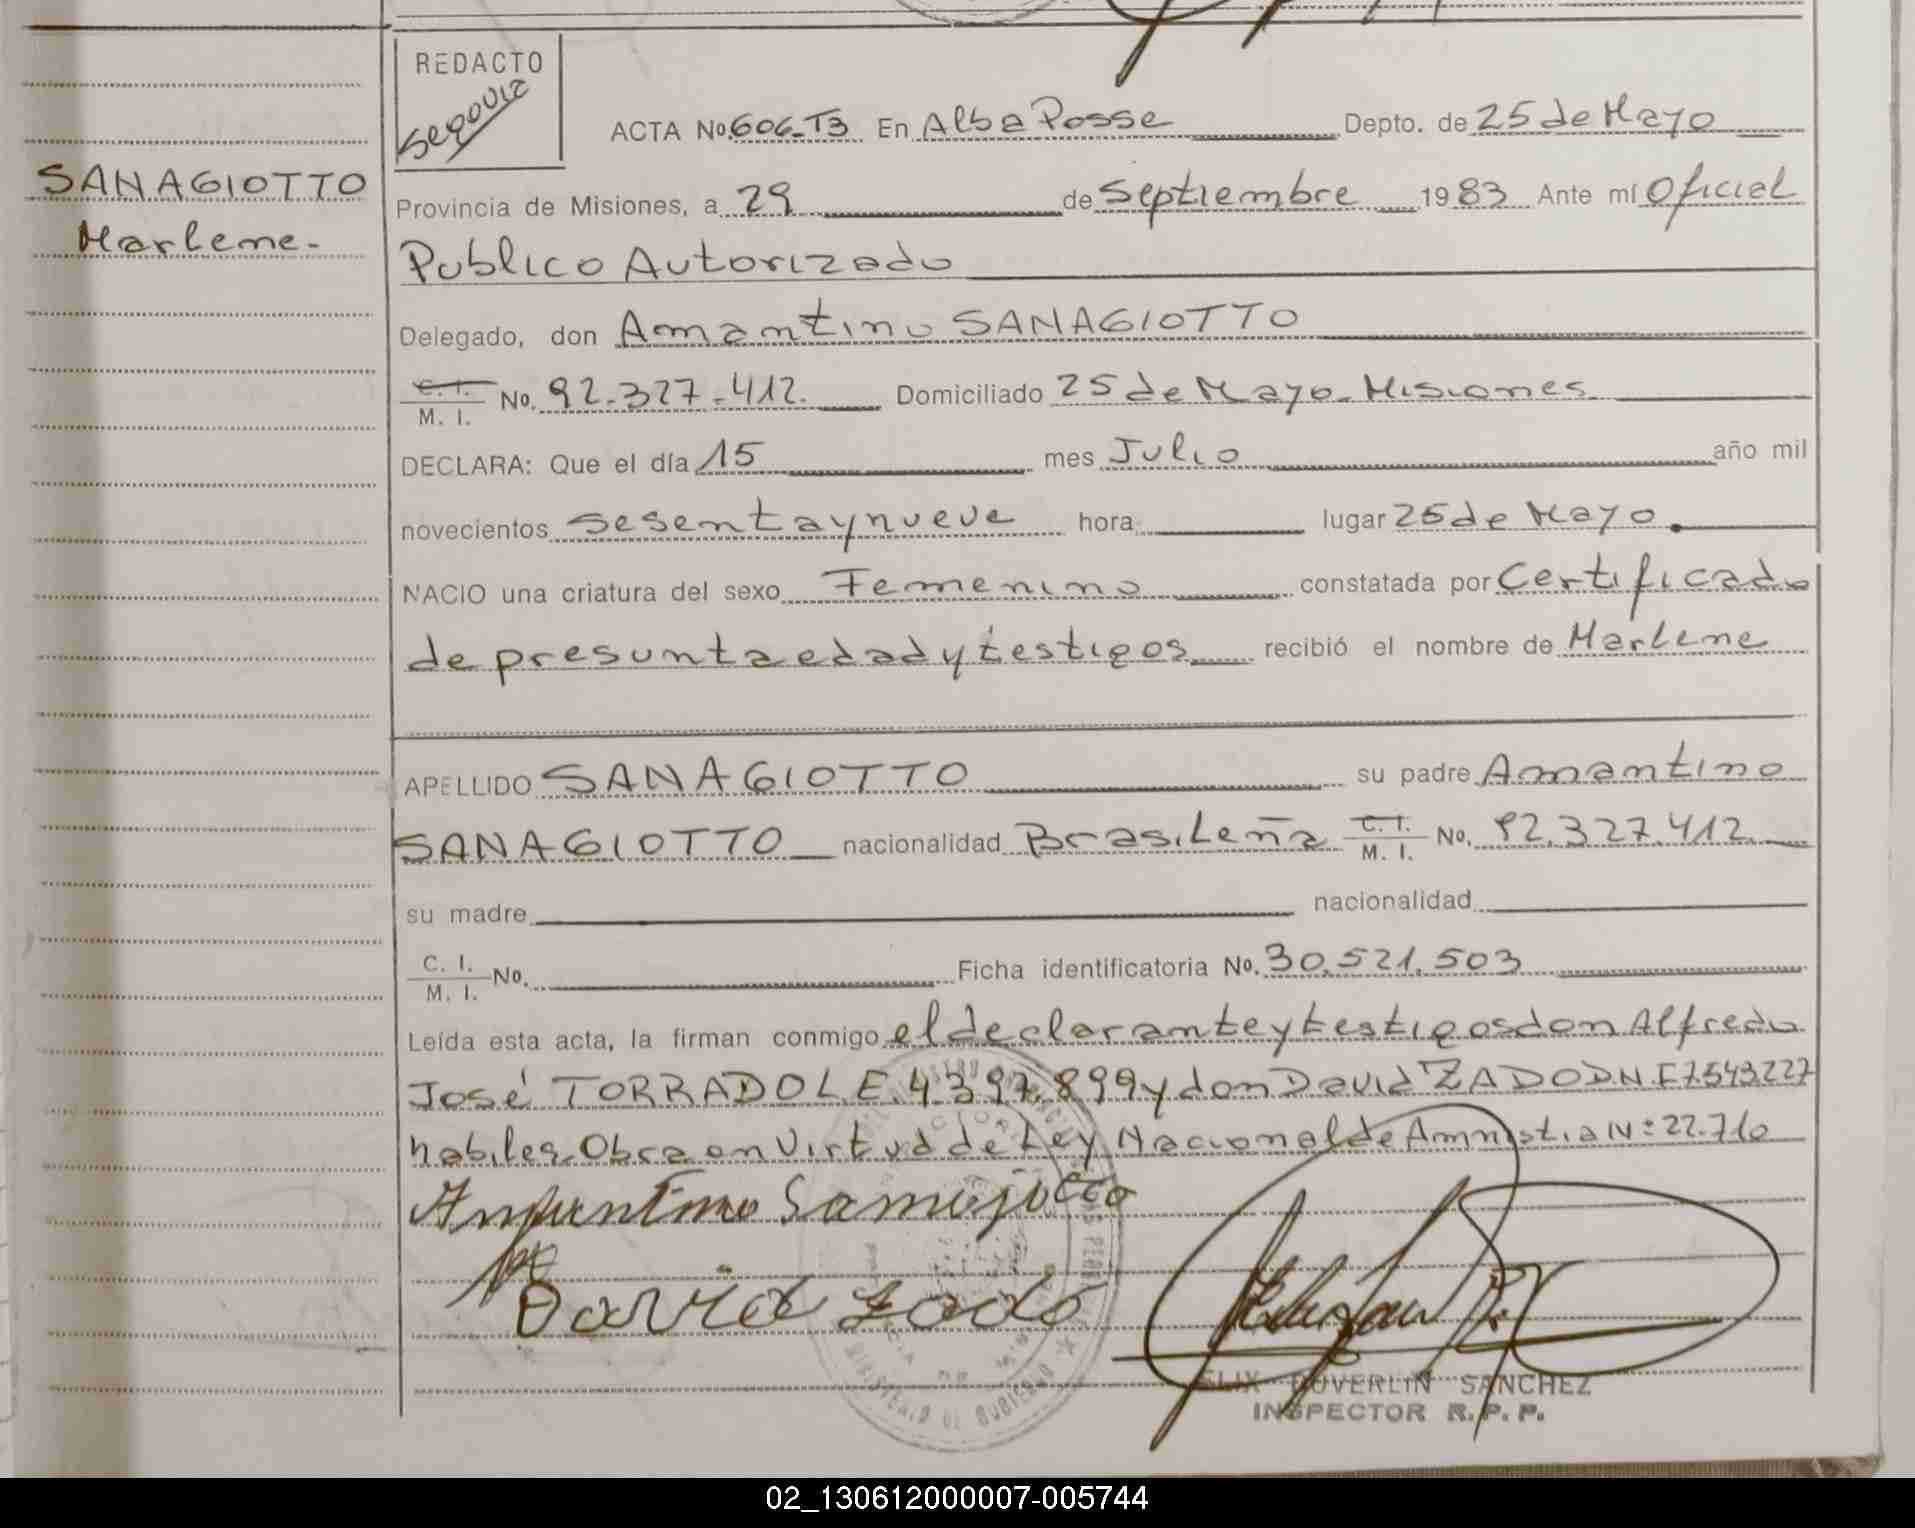 REDACTO
Segovia
ACTA No. 606-T3 En Alba Posse Depto. de 25 de Mayo
SANAGIOTTO
Marlene.-
Provincia de Misiones, a 29 de Septiembre 1983 Ante mí Oficial
Publico Autorizado
Delegado, don Amantino SANAGIOTTO
C. I. / M. I. No. 92.327.412. Domiciliado 25 de Mayo. Misiones
DECLARA: Que el día 15 mes Julio año mil
novecientos sesenta y nueve hora lugar 25 de Mayo.
NACIO una criatura del sexo Femenino constatada por Certificado
de presunta edad y testigos recibió el nombre de Marlene
APELLIDO SANAGIOTTO su padre Amantino
SANAGIOTTO nacionalidad Brasileña C. I. / M. I. No. 92.327.412.
su madre nacionalidad
C. I. / M. I. No. Ficha identificatoria No. 30.521.503
Leída esta acta, la firman conmigo el declarante y testigos don Alfredo
José TORRADO L.E. 4.397.899 y don David ZADO D.N.I 7.543.227
habiles. Obra en Virtud de Ley Nacional de Amnistia Nº 22.710
Amantino Sanagiotto
David Zado
FELIX DUVERLIN SANCHEZ
INSPECTOR R. P. P.
02_130612000007-005744